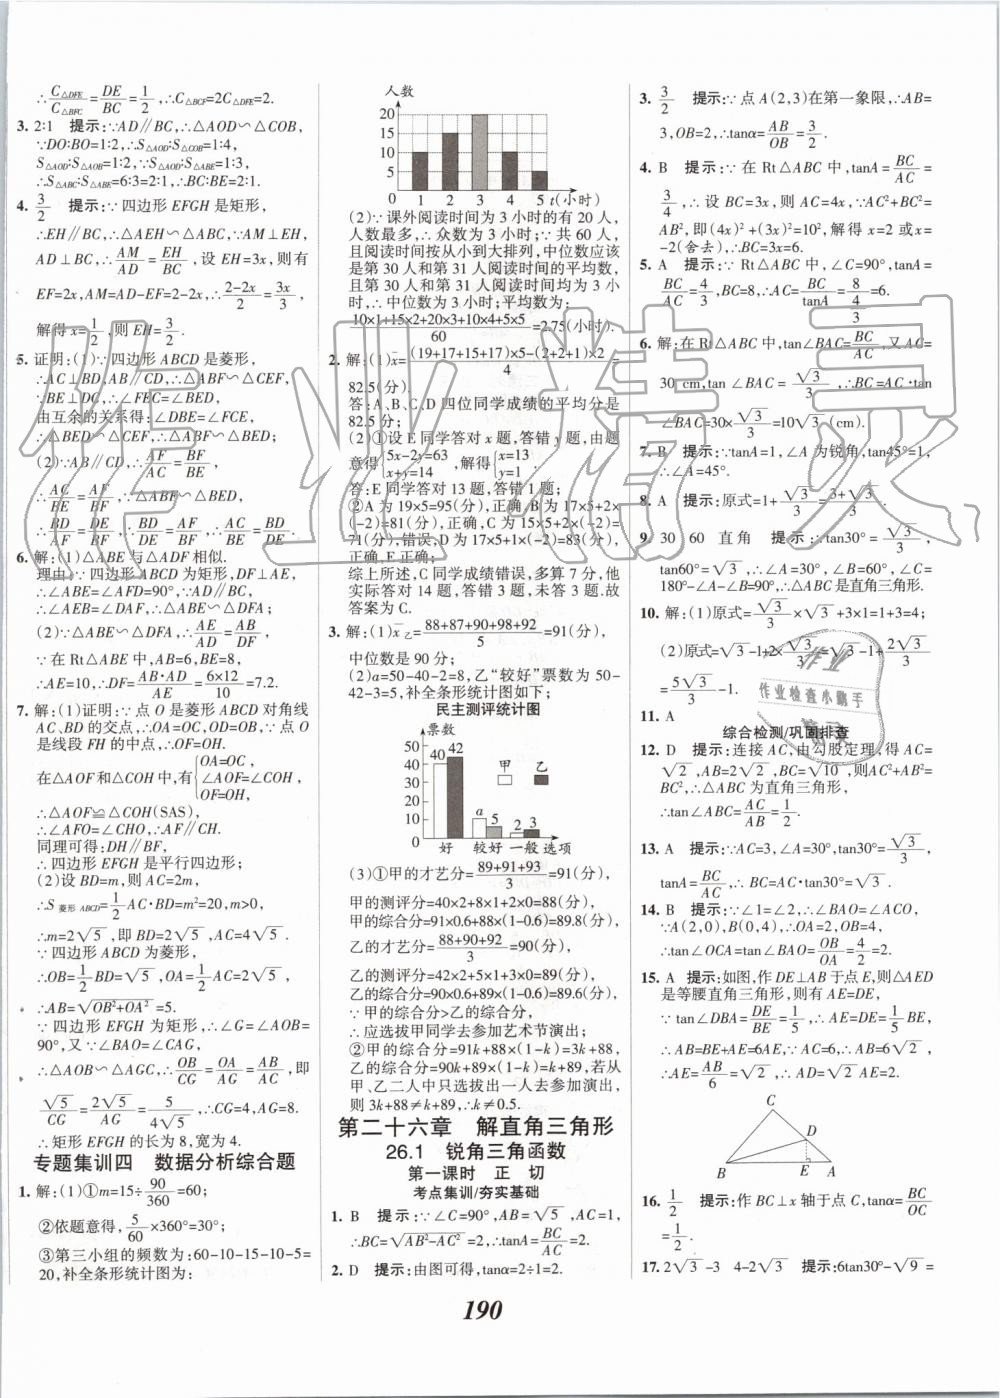 ∴C△DFE/C△BFC=DE/BC=1/2,∴C△BCF=2C△DFE=2.
3. 2∶1 提示:∵AD∥BC,∴△AOD∽△COB,
∵DO∶BO=1∶2,∴S△AOD∶S△COB=1∶4,
S△AOD∶S△AOB=1∶2,∵S△AOD∶S△ABE=1∶3,
∴S△ABC∶S△ABE=6∶3=2∶1,∴BC∶BE=2∶1.
4. 3/2 提示:∵四边形 EFGH 是矩形,
∴EH∥BC,∴△AEH∽△ABC,∵AM⊥EH,
AD⊥BC,∴AM/AD=EH/BC,设 EH=3x,则有
EF=2x,AM=AD-EF=2-2x,∴(2-2x)/2=3x/3,
解得 x=1/2,则 EH=3/2.
5. 证明:(1)∵四边形 ABCD 是菱形,
∴AC⊥BD,AB∥CD,∴△ABF∽△CEF,
∵BE⊥DC,∴∠FEC=∠BED,
由互余的关系得:∠DBE=∠FCE,
∴△BED∽△CEF,∴△ABF∽△BED;
(2)∵AB∥CD,∴AF/FC=BF/FE,
∴AF/BF=DE/BE,
∴BD/AF=BE/BF,∴BD/BE=AF/BF,∴AC/BE=BD/DE.
6. 解:(1)△ABE 与△ADF 相似.
理由:∵四边形 ABCD 为矩形,DF⊥AE,
∴∠ABE=∠AFD=90°,∵AD∥BC,
∴∠AEB=∠DAF,∴△ABE∽△DFA;
(2)∵△ABE∽△DFA,∴AE/AD=AB/DF,
∵在 Rt△ABE 中,AB=6,BE=8,
∴AE=10,∴DF=AB·AD/AE=6×12/10=7.2.
7. 解:(1)证明:∵点 O 是菱形 ABCD 对角线
AC、BD 的交点,∴OA=OC,OD=OB,∵点 O
是线段 FH 的中点,∴OF=OH.
在△AOF 和△COH 中,有{OA=OC,∠AOF=∠COH,OF=OH,
∴△AOF≌△COH(SAS),
∴∠AFO=∠CHO,∴AF∥CH.
同理可得:DH∥BF,
∴四边形 EFGH 是平行四边形;
(2)设 BD=m,则 AC=2m,
∴S菱形ABCD=1/2 AC·BD=m²=20,m>0,
∴m=2√5,即 BD=2√5,AC=4√5.
∵四边形 ABCD 为菱形,
∴OB=1/2 BD=√5,OA=1/2 AC=2√5,
∴AB=√(OB²+OA²)=5.
∵四边形 EFGH 为矩形,∴∠G=∠AOB=
90°,又∵∠BAO=∠CAG,
∴△AOB∽△AGC,∴OB/CG=OA/AG=AB/AC,即
√5/CG=2√5/AG=5/4√5,∴CG=4,AG=8.
∴矩形 EFGH 的长为 8,宽为 4.
专题集训四 数据分析综合题
1. 解:(1)①m=15÷90/360=60;
②依题意得,5/60×360°=30°;
③第三小组的频数为:60-10-15-10-5=
20,补全条形统计图为:
人数
20
15
10
5
0 1 2 3 4 5 t(小时)
(2)∵课外阅读时间为 3 小时的有 20 人,
人数最多,∴众数为 3 小时;∵共 60 人,
且阅读时间按从小到大排列,中位数应该
是第 30 人和第 31 人阅读时间的平均数,
且第 30 人和第 31 人阅读时间均为 3 小
时,∴中位数为 3 小时;平均数为:
(10×1+15×2+20×3+10×4+5×5)/60=2.75(小时).
2. 解:(1)x̄=((19+17+15+17)×5-(2+2+1)×2)/4=
82.5(分).
答:A、B、C、D 四位同学成绩的平均分是
82.5 分;
(2)①设 E 同学答对 x 题,答错 y 题,由题
意得{5x-2y=58,x+y=14,解得{x=13,y=1.
答:E 同学答对 13 题,答错 1 题;
②A 为 19×5=95(分),正确,B 为 17×5+2×
(-2)=81(分),正确,C 为 15×5+2×(-2)=
71(分),错误,D 为 17×5+1×(-2)=83(分),
正确,E 正确.
综上所述,C 同学成绩错误,多算 7 分,他
实际答对 14 题,答错 3 题,未答 3 题.故
答案为 C.
3. 解:(1)x̄乙=(88+87+90+98+92)/5=91(分),
中位数是 90 分;
(2)a=50-40-2=8,乙“较好”票数为 50-
42-3=5,补全条形统计图如下;
民主测评统计图
票数
50
40
30
20
10
0
40 42 a 5 2 3
甲 乙
好 较好 一般 选项
(3)①甲的才艺分=(89+91+93)/3=91(分),
甲的测评分=40×2+8×1+2×0=88(分),
甲的综合分=91×0.6+88×(1-0.6)=89.8(分).
乙的才艺分=(88+90+92)/3=90(分),
乙的测评分=42×2+5×1+3×0=89(分),
乙的综合分=90×0.6+89×(1-0.6)=89.6(分),
∵甲的综合分>乙的综合分,
∴应选拔甲同学去参加艺术节演出;
②甲的综合分=91k+88×(1-k)=3k+88,
乙的综合分=90k+89×(1-k)=k+89,若从
甲、乙二人中只选拔出一人去参加演出,
则 3k+88≠k+89,∴k≠0.5.
第二十六章 解直角三角形
26.1 锐角三角函数
第一课时 正 切
考点集训/夯实基础
1. B 提示:∵∠C=90°,AB=√5,AC=1,
∴BC=√(AB²-AC²)=2,∴tanA=BC/AC=2.
2. D 提示:由图可得,tanα=2÷1=2.
3. 3/2 提示:∵点 A(2,3)在第一象限,∴AB=
3,OB=2,∴tanα=AB/OB=3/2.
4. B 提示:∵在 Rt△ABC 中,tanA=BC/AC=
3/4,∴设 BC=3x,则 AC=4x,∵AC²+BC²=
AB²,即(4x)²+(3x)²=10²,解得 x=2 或 x=
-2(舍去),∴BC=3x=6.
5. A 提示:∵Rt△ABC 中,∠C=90°,tanA=
BC/AC=4/3,BC=8,∴AC=BC/tanA=8/(4/3)=6.
6. 解:在 Rt△ABC 中,tan∠BAC=BC/AC,又 AC=
30 cm,tan∠BAC=√3/3,∴BC=AC·tan
∠BAC=30×√3/3=10√3(cm).
7. B 提示:∵tanA=1,∠A 为锐角,tan45°=1,
∴∠A=45°.
8. A 提示:原式=1+√3/3=(3+√3)/3.
9. 30 60 直角 提示:∵tan30°=√3/3,
tan60°=√3,∴∠A=30°,∠B=60°,∠C=
180°-∠A-∠B=90°,∴△ABC 是直角三角形.
10. 解:(1)原式=√3/3×√3+3×1=1+3=4;
(2)原式=√3-1+2×√3/3=√3-1+2√3/3
=5√3/3-1.
11. A
综合检测/巩固排查
12. D 提示:连接 AC,由勾股定理,得 AC=
√2,AB=2√2,BC=√10,则AC²+AB²=
BC²,∴△ABC 为直角三角形,
∴tan∠ABC=AC/AB=1/2.
13. A 提示:∵AC=3,∠A=30°,tan30°=√3/3,
tanA=BC/AC,∴BC=AC·tan30°=√3.
14. B 提示:∵∠1=∠2,∴∠BAO=∠ACO,
∵A(2,0),B(0,4),∴OA=2,OB=4,
∴tan∠OCA=tan∠BAO=OB/OA=4/2=2.
15. A 提示:如图,作 DE⊥AB 于点 E,则△AED
是等腰直角三角形,则有 AE=DE,
∵tan∠DBA=DE/BE=1/5,∴AE=DE=1/5BE,
∴AB=BE+AE=6AE,∵AC=6,∴AB=6√2,
∴AE=AB/6=√2,∴AD=√2AE=2.
C
D
B E A
16. 1/2 提示:作 BC⊥x 轴于点 C,tanα=BC/OC=
1/2.
17. 2√3-3 4-2√3 提示:6tan30°-√9=
190
作业精灵
作业
作业检查小助手
精灵